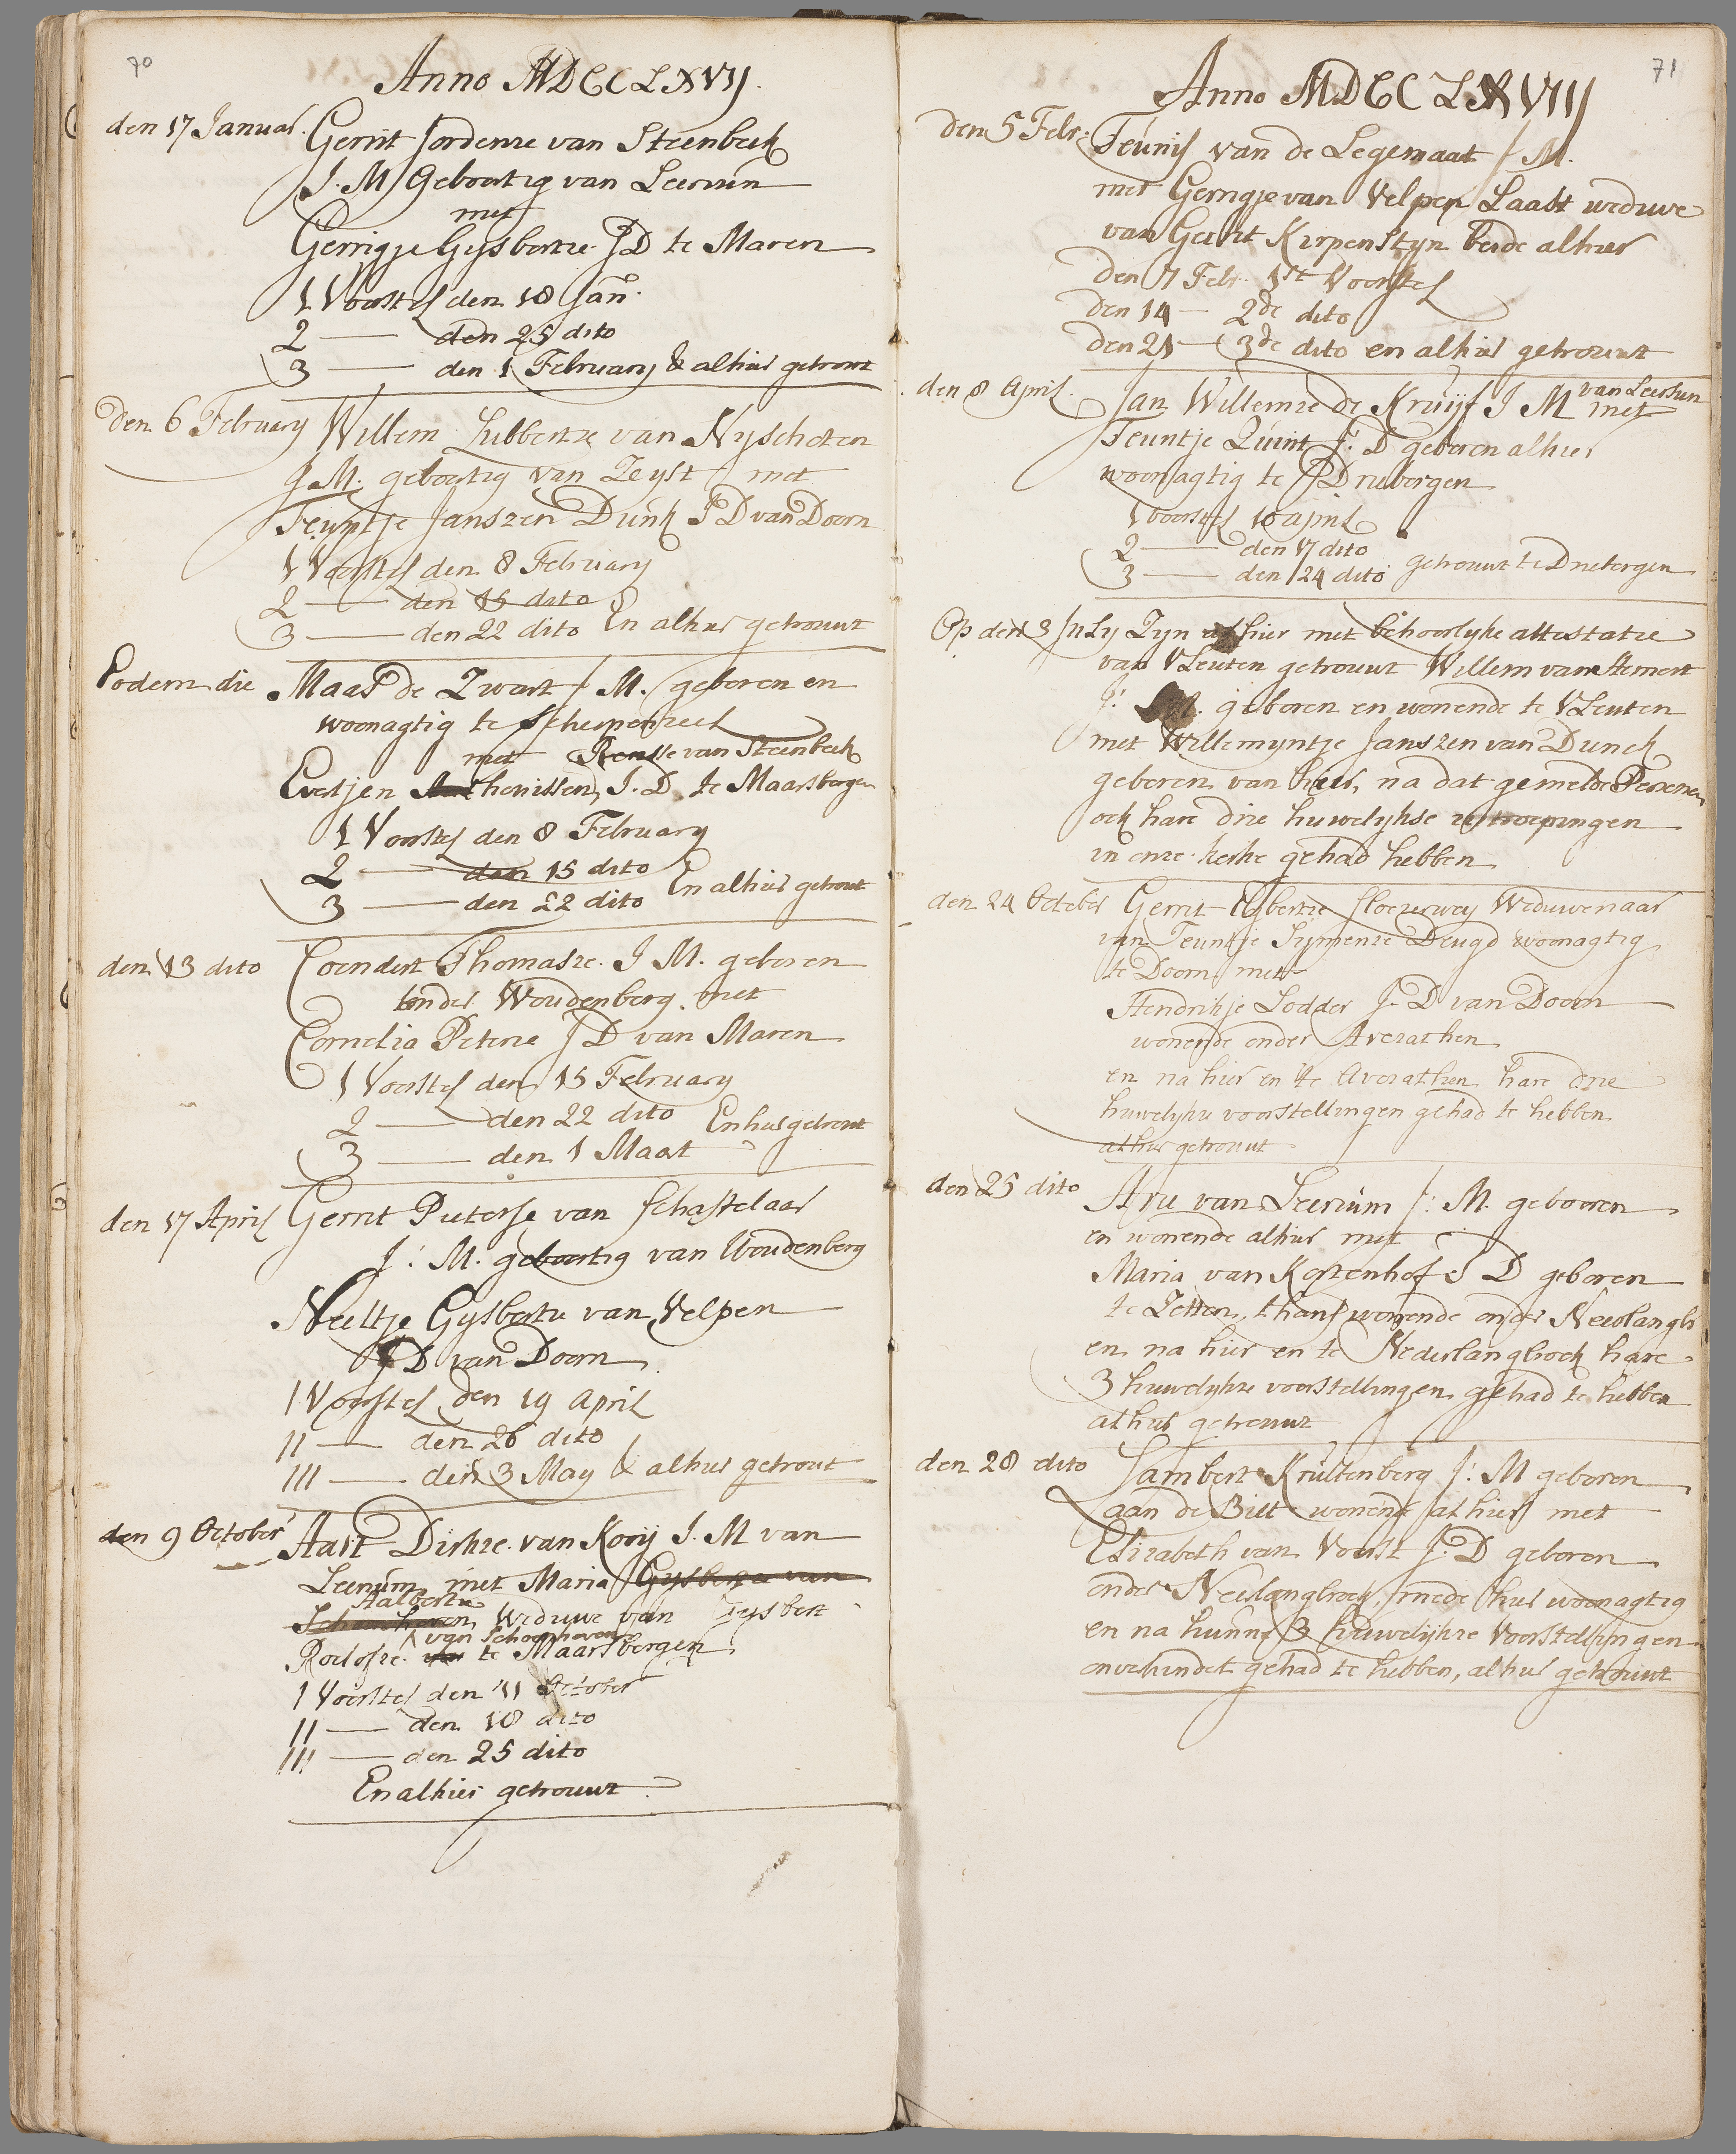 70
Anno MDCCLXVIJ.
den 17 Januar. Gerrit Jordense van Steenbeek
J. M. Geboortig van Leersum
met
Gerrigje Gijsbertze JD te Maren
1 Voorstel den 18 Jan.
2 — den 25 dito
3 — den 1 February & alhier getrout
den 6 February Willem Lubbertze van Nyschoten
J. M. geboortig van Zeyst met
Teuntje Janszen Dunk JD van Doorn
1 Voorstel den 8 February
2 — den 15 dito
3 — den 22 dito En alhier getrouwt
Eodem die Maas de Zwart J M. geboren en
woonagtig te Scherpenzeel
met Rensse van Steenbeek
Evertjen Thonissen, J. D. te Maarsbergen
1 Voorstel den 8 February
2 — den 15 dito
3 — den 22 dito En alhier getrout
den 13 dito Coendert Thomasze. J M. geboren
onder Woudenberg. met
Cornelia Peterse JD van Maren
1 Voorstel den 15 February
2 — den 22 dito En hier getrout
3 — den 1 Maart
den 17 April Gerrit Pieterse van Schastelaar
J: M. geboortig van Woudenberg
Neeltje Gysbertze van Velpen
JD van Doorn
1 Voorstel den 19 April
II — den 26 dito
III — den 3 May & alhier getrout
den 9 October Aart Dirkze. van Kooij J. M van
Leersum met Maria Gysbertze van
Aalbertze
Schoonhoven Weduwe van Gysbert
van Schoonhoven
Roelofze. te Maarsbergen
1 Voorstel den 11 October
II — den 18 dito
III — den 25 dito
En alhier getrouwt
71
Anno MDCCLXVIIJ
den 5 Febr: Teunis van de Legemaat J M.
met Gerrigje van Velpen Laast weduwe
van Gerrit Kerpensteyn beide alhier
den 7 Febr. 1ste Voorstel
den 14 — 2de dito
den 21 — 3de dito en alhier getrouwt
den 8 April. Jan Willemze de Kruijf J M van Leersum
met
Teuntje Quint J: D geboren alhier
woonagtig te Driebergen
1 voorstel 10 april
2 — den 17 dito
3 — den 24 dito getrouwt te Driebergen
Op den 3 July Zyn alhier met behoorlyke attestatie
van VLeuten getrouwt Willem van Hemert
J: M. geboren en wonende te VLeuten
met Willemyntje Janszen van Dunck
geboren van hier, na dat gemelde Personen
ock hare drie huwelykse uytroepingen
in onze kerke gehad hebben
den 24 October Gerrit Elbertze Weduwenaar
van Teuntje Symense Deugd woonagtig
te Doorn met
Hendrikje Lodder J. D van Doorn
wonende onder Averathen
en na hier en te Averathen hare drie
huwelykse voorstellingen gehad te hebben
alhier getrouwt
den 25 dito Arie van Leersum J: M. geboren
en wonende alhier met
Maria van Kostenhof J D geboren
te Zetten, thans wonende onder Neerlangbr
en na hier en te Nederlangbroek hare
3 huwelykze voorstellingen gehad te hebben
alhier getrouwt
den 28 dito Lambert Kruitenberg J: M geboren
aan de Bilt wonende alhier met
Elizabeth van Voorst J: D geboren
onder Neerlangbroek, mede hier woonagtig
en na hunne 3 huwelykze Voorstellingen
onverhindert gehad te hebben, alhier getrouwt